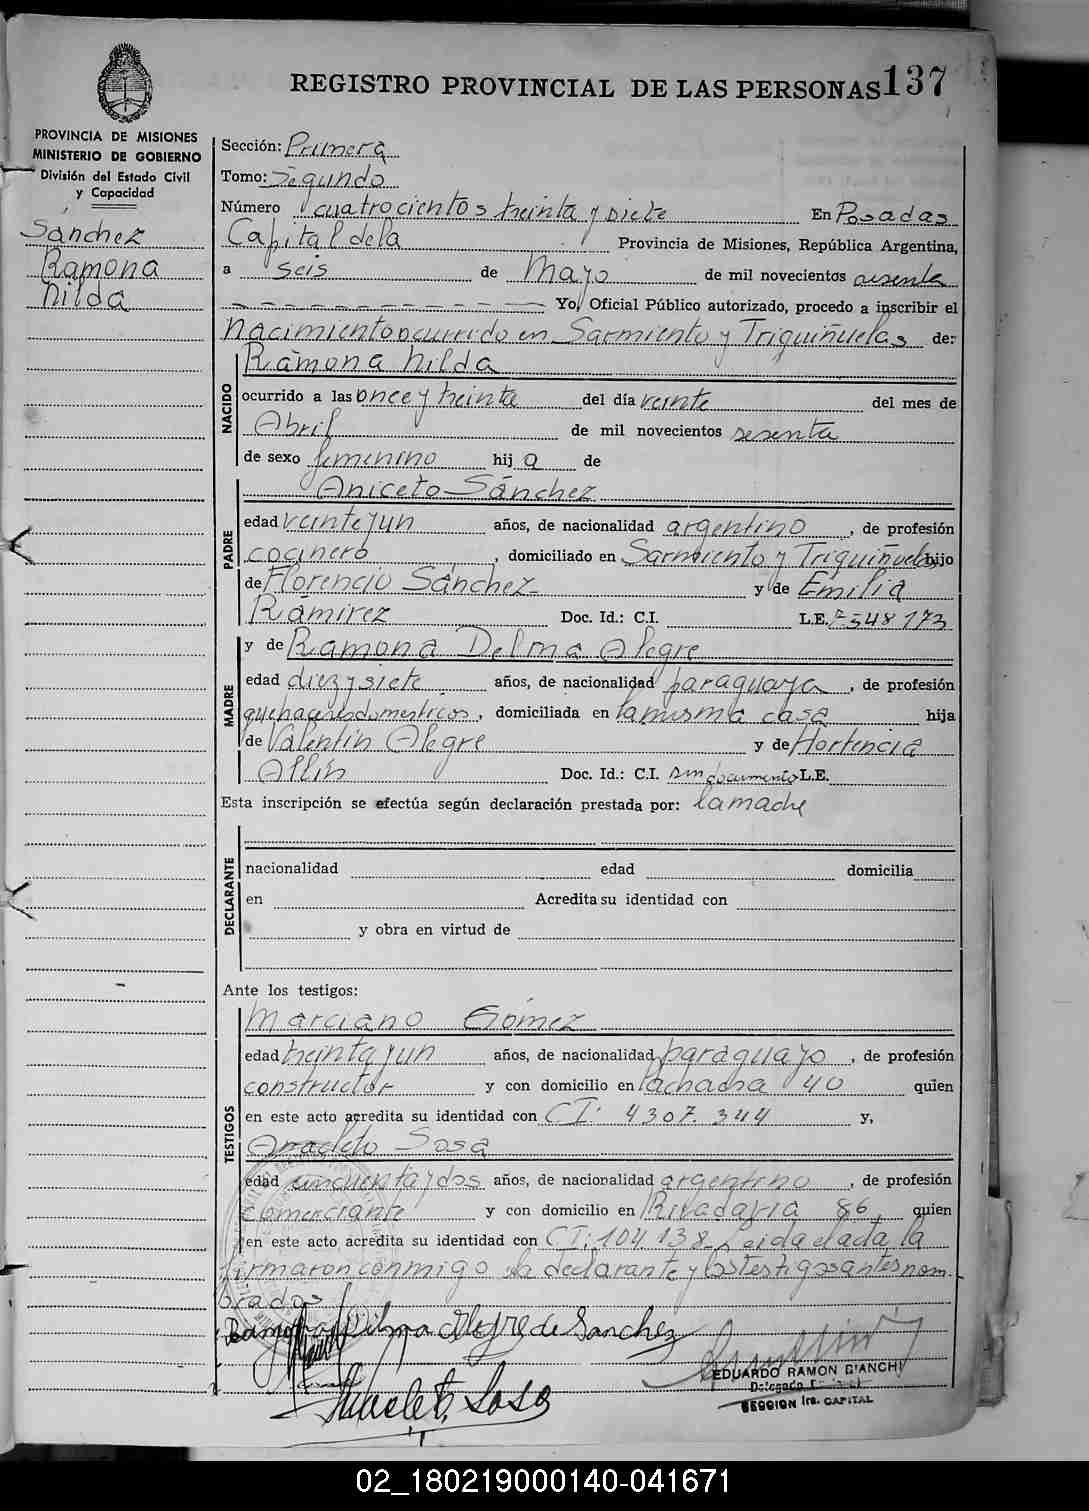 REGISTRO PROVINCIAL DE LAS PERSONAS 137
PROVINCIA DE MISIONES
MINISTERIO DE GOBIERNO
División del Estado Civil
y Capacidad
Sánchez
Ramona
Nilda
Sección: Primera
Tomo: Segundo
Número cuatrocientos treinta y siete En Posadas
Capital de la Provincia de Misiones, República Argentina,
a seis de Mayo de mil novecientos sesenta
Yo, Oficial Público autorizado, procedo a inscribir el
Nacimiento ocurrido en Sarmiento y Triguiñuelas de:
NACIDO
Ramona Nilda
ocurrido a las once y treinta del día veinte del mes de
Abril de mil novecientos sesenta
de sexo femenino hija de
PADRE
Aniceto Sánchez
edad veinte y un años, de nacionalidad argentino, de profesión
cocinero, domiciliado en Sarmiento y Triguiñuelas hijo
de Florencio Sánchez y de Emilia
Ramirez Doc. Id.: C.I. L.E. 7548173
MADRE
y de Ramona Delma Alegre
edad diez y siete años, de nacionalidad paraguaya, de profesión
quehaceres domesticos, domiciliada en la misma casa hija
de Valentín Alegre y de Hortencia
Doc. Id.: C.I. sin documento L.E.
Esta inscripción se efectúa según declaración prestada por: la madre
DECLARANTE
nacionalidad edad domicilia
en Acredita su identidad con
y obra en virtud de
Ante los testigos:
TESTIGOS
Marciano Gómez
edad treinta y un años, de nacionalidad paraguayo, de profesión
constructor y con domicilio en la chacra 40 quien
en este acto acredita su identidad con CI: 4307.344 y,
Anacleto Sosa
edad cincuenta y dos años, de nacionalidad argentino, de profesión
comerciante y con domicilio en Rivadavia 86, quien
en este acto acredita su identidad con CI: 104.138. Leida el acta, la
firmaron conmigo la declarante y los testigos antes nom-
brados
Ramona Dilma Alegre de Sanchez
Anacleto Sosa
EDUARDO RAMON BIANCHI
Delegado
SECCION 1ra. CAPITAL
02_180219000140-041671